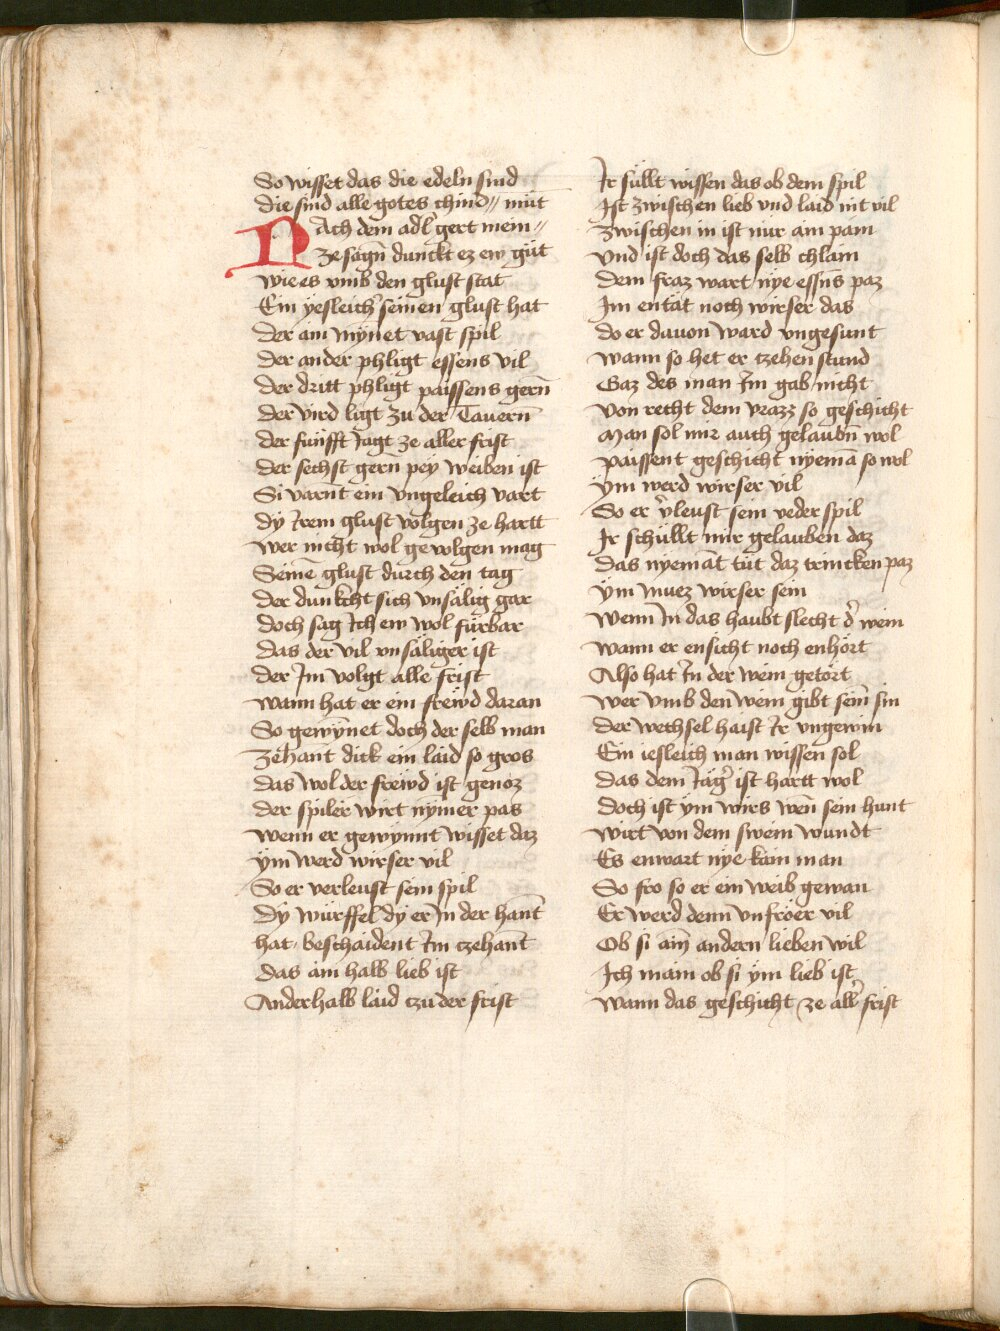 So wisset das die edeln sind
die sind alle gotes chind // müt
NAch dem adl gert mein //
ze sagñ dunckt ez ew güt
wie es vmb den glust stat
Ein yesleich seinen glust hat
der ain mynnet vast spil
der ander phligt essens vil
der dritt phligt paissens gerñ
der vird ligt zu der Tauerñ
der fünfft Jagt ze aller frist
der sechst gerñ pey weiben ist
Si varnt ein vngeleich vart
dy Irem glust volgen ze hartt
wer nicht wol gevolgen mag
Seinē glust durch den tag
der dunkcht sich vnsälig gar
doch sag Ich ew wol fürbar
das der vil vnsäliger ist
der Im volgt alle frist
wann hat er ein frewd daran
So gewynet doch der selb man
zehant dick ein laid so gros
das wol der frewd ist genoz
der spiler wirt nymer pas
wenn er gewynnt wisset daz
ym werd wirser vil
So er verleust sein spil
dy würffel dy er In der hant
hat beschaident Im czehant
das ain halb lieb ist
Anderhalb laid czu der frist
Ir süllt wissen das ob dem spil
Ist zwischen lieb vnd laid nit vil
zwischen in ist nur ain pain
vnd ist doch das selb chlain
dem fraz wart nye essñs paz
Im entät noch wirser das
do er dauon ward vngesunt
wann so het er czehen stund
Gaz des man Im gab nicht
von recht dem vrazz so geschicht
Man sol mir auch gelaubñ wol
paissent geschicht nyemā so wol
ym werd wirser vil
So er v̉leust sein veder spil
Ir schüllt mir gelauben daz
das nyemāt tüt daz trincken paz
ym muez wirser sein
wenn In das haubt slecht d̉ wein
wann er ensicht noch enhört
Also hat In der wein getört
wer vmb den wein gibt sein sin
der wechsel haist Ir vngewin
Ein iesleich man wissen sol
das dem Jäg̉ ist hartt wol
doch ist ym wirs wen̄ sein hunt
wirt von dem swein wundt
Es enwart nye kain man
So fro so er ein weib gewan
Er werd denn vnfröer vil
Ob si ain andern lieben wil
Ich main ob si ym lieb ist
wann das geschicht ze all̉ frist